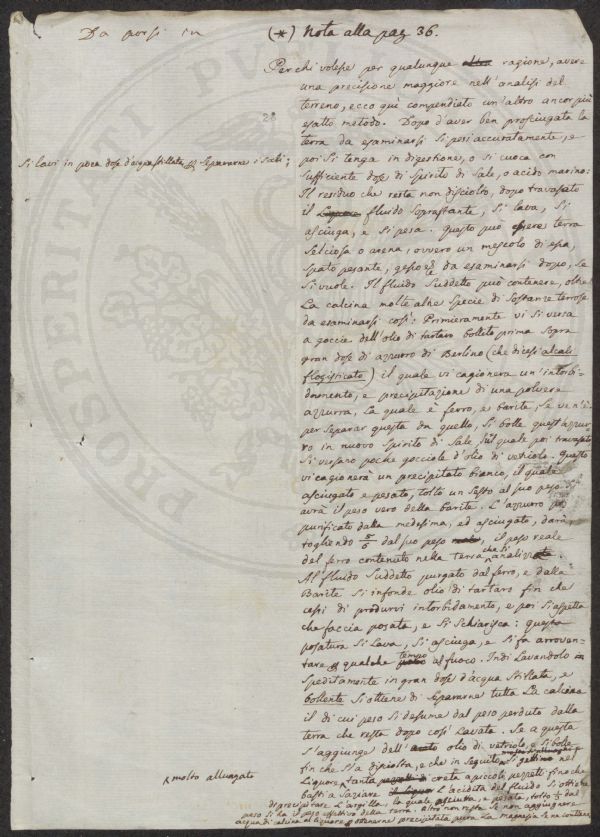 Da porsi in
(*) Nota alla pag 36.
Per chi volesse per qualunque altra ragione, avere
una precisione maggiore nell'analisi del
terreno, ecco quì compendiato un'altro ancor più
esatto metodo. Dopo d'aver ben prosciugata la
terra da esaminarsi si pesi accuratamente, e
Si lavi in poca dose d'acqua stillata, e separarne i sali;
poi si tenga in digestione, o si cuoca con
sufficiente dose di Spirito di Sale, o acido marino:
Il residuo che resta non disciolto, dopo travasato
il Liquore fluido soprastante, si lava, si
asciuga, e si pesa. Questo può essere terra
Selciosa o arena, ovvero un mescolo di essa,
Spato pesante, gesso &c da esaminarsi dopo, se
si vuole. Il fluido suddetto può contenere, oltre
La calcina molte altre specie di Sostanze terrose
da esaminarsi così: Primieramente vi si versa
a goccie dell'olio di tartaro bollito prima sopra
gran dose di azzurro di Berlino (che dicesi alcali
flogisticato) il quale vi cagionerà un'intorbi-
damento, e precipitazione di una polvere
azzurra, la quale è ferro, e barite, se ve n'è:
per separar questa da quello, si bolle quest'azzur-
ro in nuovo Spirito di Sale sul quale poi travasato
si versano poche gocciole d'olio di vetriolo. Questo
vi cagionerà un precipitato bianco, il quale
asciugato e pesato, tolto un sesto al suo peso
avrà il peso vero della barite. L'azzurro poi
purificato dalla medesima, ed asciugato, darà,
togliendo 5/6 dal suo peso, il peso reale
del ferro contenuto nella terra che si analizza.
Al fluido suddetto purgato dal ferro, e dalla
Barite si infonde olio di tartaro fin che
cessi di produrvi intorbidamento, e poi si aspetta
che faccia posata, e si schiarisca: questa
posatura si lava, si asciuga, e si fa arroven-
tare qualche tempo al fuoco. Indi Lavandolo
speditamente in gran dose d'acqua stillata, e
bollente si ottiene di separarne tutta La calcina
il di cui peso si desume dal peso perduto dalla
terra che resta dopo così Lavata. Se a questa
s'aggiunge dell' olio di vetriolo, e si bolle
fin che si a disciolta, e che in seguito si gettino nel
molto allungato
Liquore tanta creta a piccoli pezzetti fino che
basti a saziare L'acidità del fluido si ottiene
di precipitare L'argilla, la quale asciutta, e pesata, tolto dal
peso si ha il peso effettivo della terra. Altro non resta se non aggiungere
acqua di calcina al liquore e ottenerne precipitata pura La magnesia se ne contiene